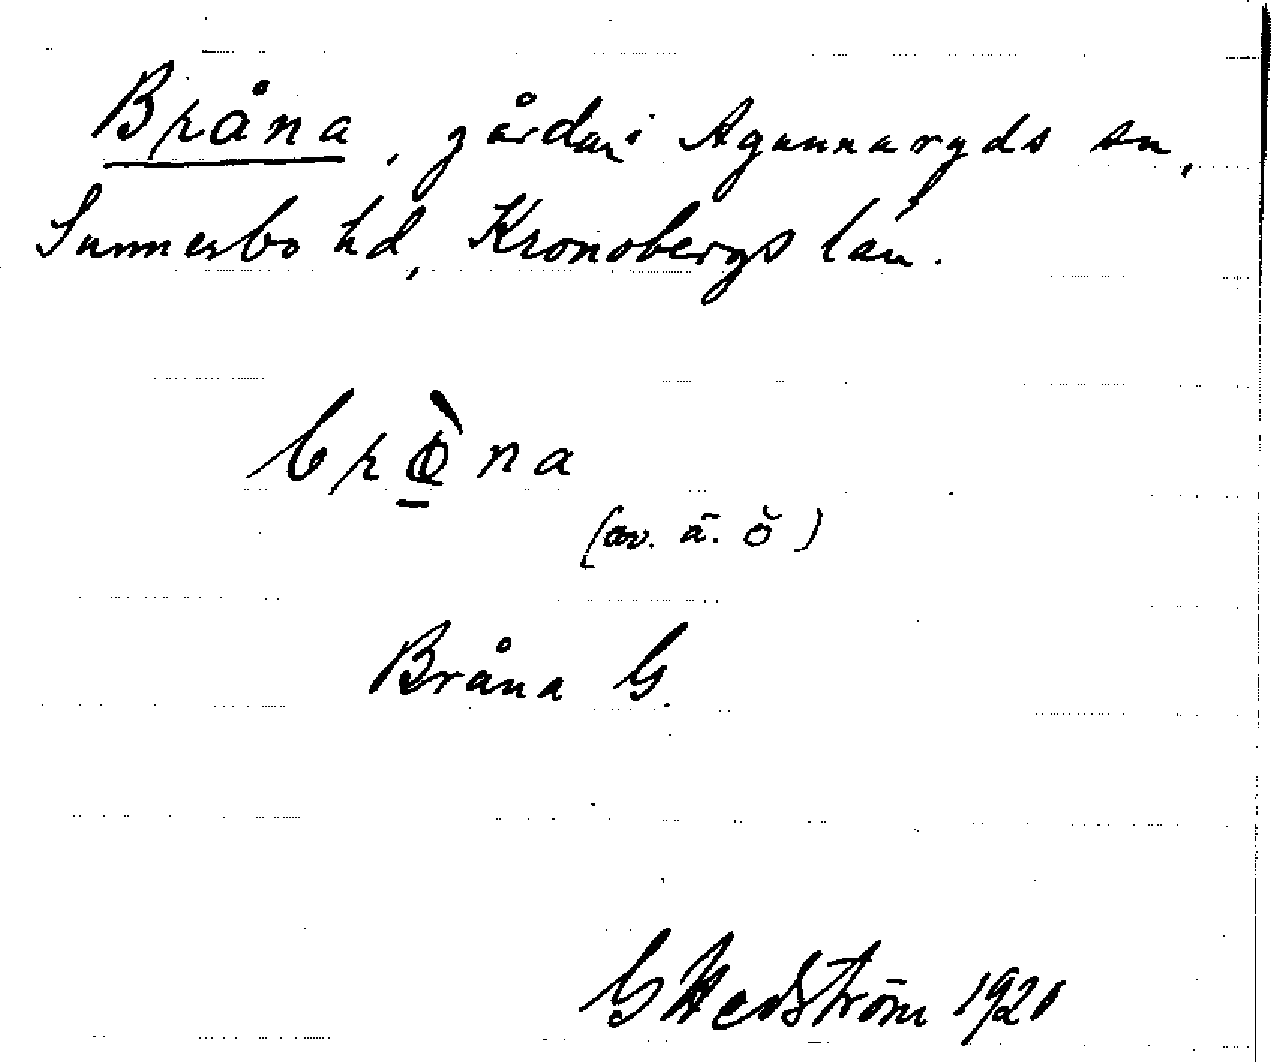 Bråna, gårdar i Agunnaryds sn,
Sunnerbo hd, Kronobergs län.
(av. ä. ŏ)
Bråna G.
G Hedström 1920